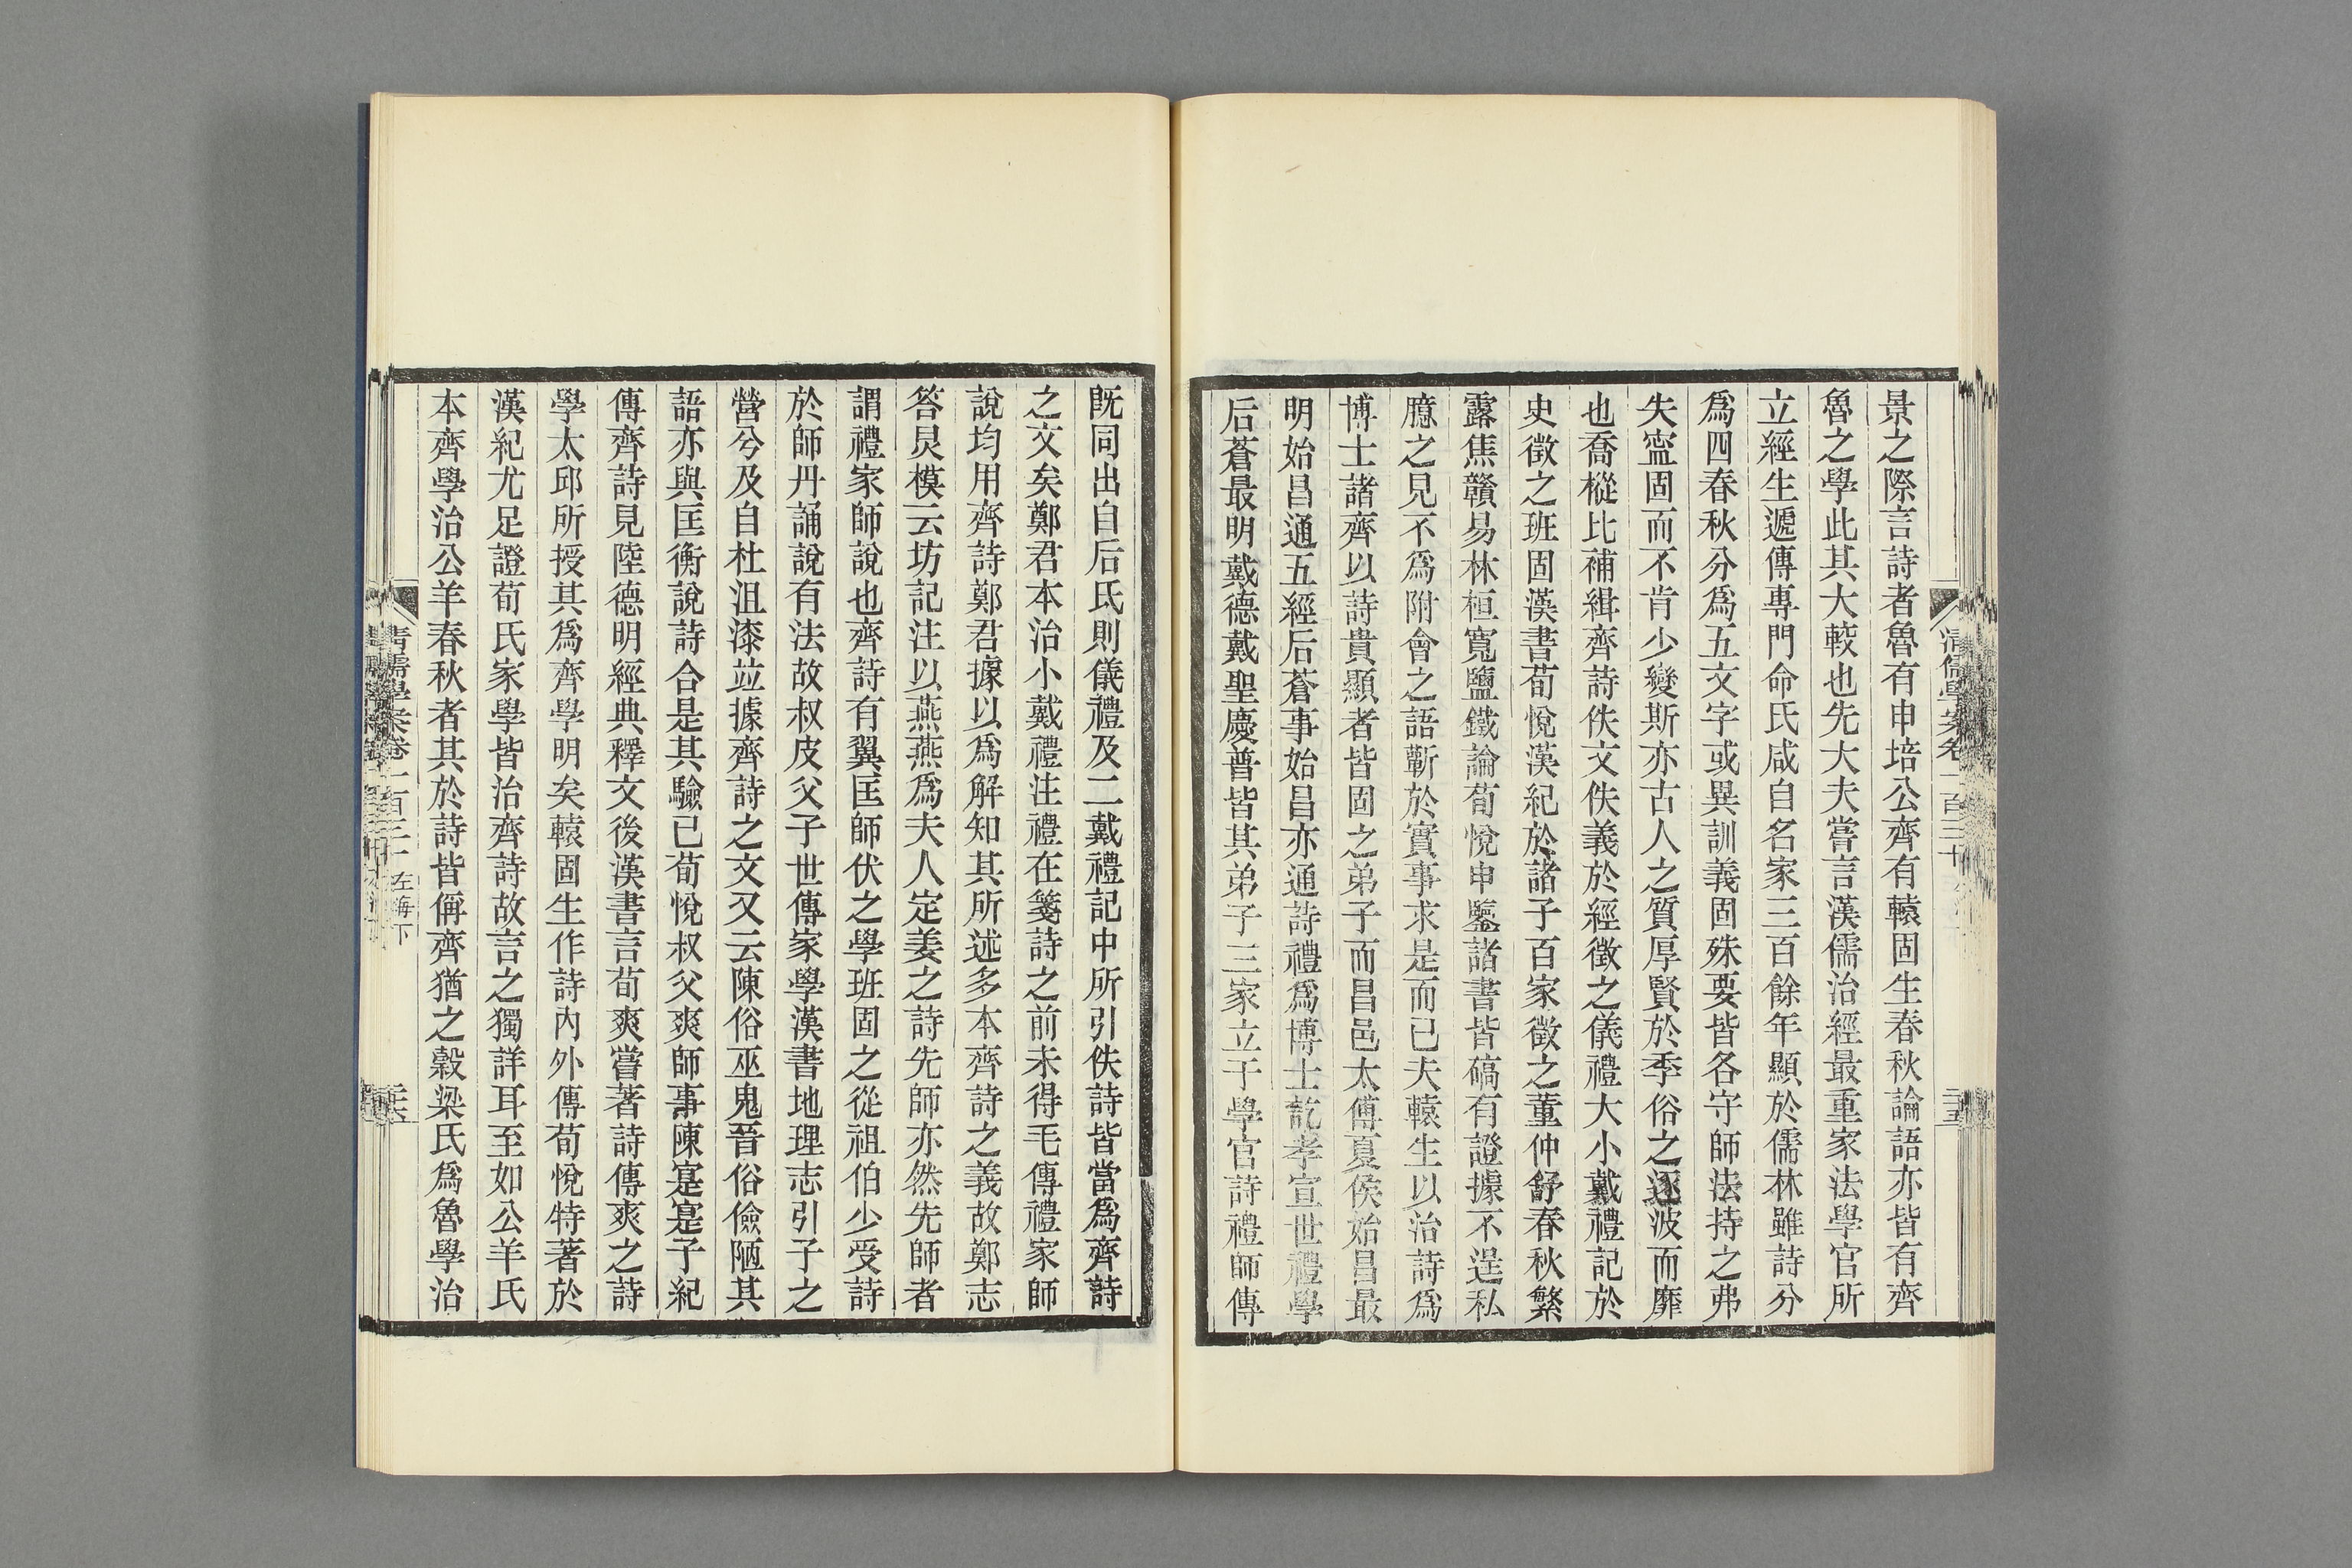 景之際言詩者魯有申培公齊有轅固生春秋論語亦皆有齊
魯之學此其大較也先大夫嘗言漢儒治經最重家法學官所
立經生遞傳專門命氏咸自名家三百餘年顯於儒林雖詩分
爲四春秋分爲五文字或異訓義固殊要皆各守師法持之弗
失寍固而不肯少變斯亦古人之質厚賢於季俗之逐波而靡
也喬樅比補緝齊詩佚文佚義於經徵之儀禮大小戴禮記於
史徵之班固漢書荀悅漢紀於諸子百家徵之董仲舒春秋繁
露焦贛易林桓寬鹽鐵論荀悅申鑒諸書皆碻有證據不逞私
臆之見不爲附會之語蘄於實事求是而已夫轅生以治詩爲
博士諸齊以詩貴顯者皆固之弟子而昌邑太傅夏侯始昌最
明始昌通五經后蒼事始昌亦通詩禮爲博士訖孝宣世禮學
后蒼最明戴德戴聖慶普皆其弟子三家立于學官詩禮師傳
既同出自后氏則儀禮及二戴禮記中所引佚詩皆當爲齊詩
之文矣鄭君本治小戴禮注禮在箋詩之前未得毛傳禮家師
說均用齊詩鄭君據以爲解知其所述多本齊詩之義故鄭志
答炅模云坊記注以燕燕爲夫人定姜之詩先師亦然先師者
謂禮家師說也齊詩有翼匡師伏之學班固之從祖伯少受詩
於師丹誦說有法故叔皮父子世傳家學漢書地理志引子之
營兮及自杜沮漆竝據齊詩之文又云陳俗巫鬼晉俗儉陋其
語亦與匡衡說詩合是其驗已荀悅叔父爽師事陳寔寔子紀
傳齊詩見陸德明經典釋文後漢書言荀爽嘗著詩傳爽之詩
學太邱所授其爲齊學明矣轅固生作詩內外傳荀悅特著於
漢紀尤足證荀氏家學皆治齊詩故言之獨詳耳至如公羊氏
本齊學治公羊春秋者其於詩皆偁齊猶之穀梁氏爲魯學治